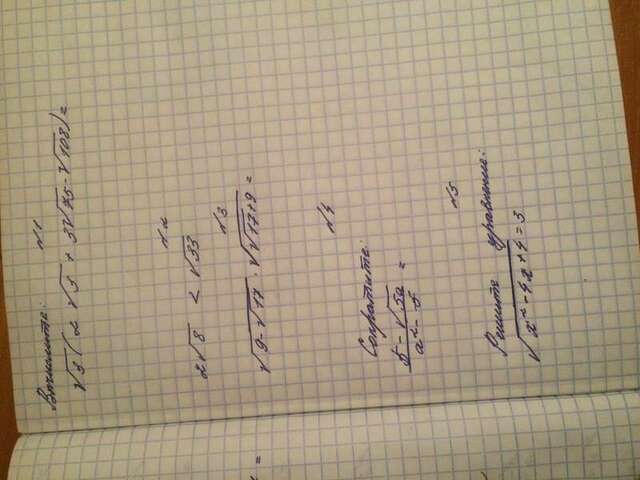 n 1
Вычислите:
√3(2√3 + 3√75 - √108) =
n 2
2√8 < √33
n 3
√9-√17 · √√17+9 =
n 4
Сократите:
5-√5a / a²-5 =
n 5
Решите уравнение:
√x²-4x+4 = 3
=